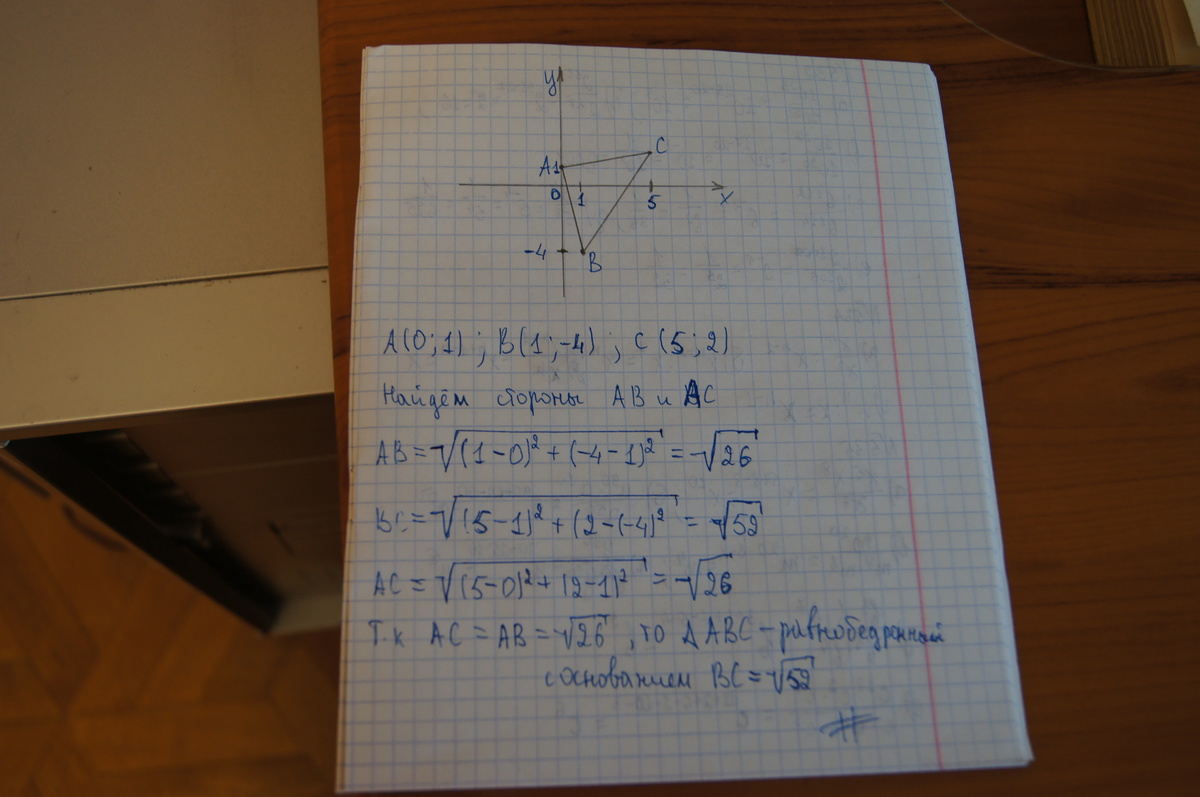 y
A 1
C
0 1 5 x
-4
B
A(0;1) ; B(1;-4) ; C(5;2)
Найдём стороны AB и AC
AB = √(1-0)² + (-4-1)² = √26
BC = √(5-1)² + (2-(-4)² = √52
AC = √(5-0)² + (2-1)² = √26
Т.к AC = AB = √26 , то Δ ABC - равнобедренный
с основанием BC = √52
#